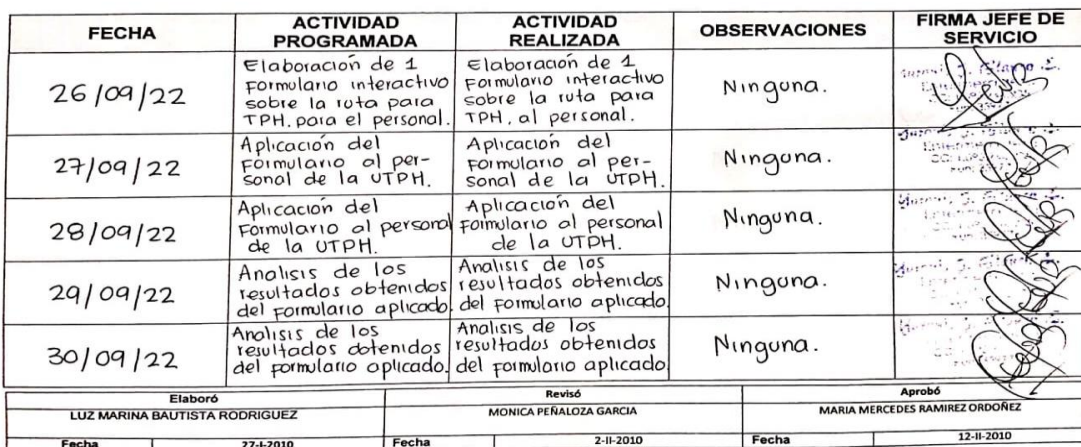 FECHA ACTIVIDAD PROGRAMADA ACTIVIDAD REALIZADA OBSERVACIONES FIRMA JEFE DE SERVICIO
26/09/22
Elaboración de 1
Formulario interactivo
sobre la ruta para
TPH. para el personal.
Elaboración de 1
Formulario interactivo
sobre la ruta para
TPH, al personal.
Ninguna.
27/09/22
Aplicación del
Formulario al per-
sonal de la UTPH.
Aplicación del
Formulario al per-
sonal de la UTPH.
Ninguna.
28/09/22
Aplicación del
Formulario al personal
de la UTPH.
Aplicación del
Formulario al personal
de la UTPH.
Ninguna.
29/09/22
Analisis de los
resultados obtenidos
del formulario aplicado.
Analisis de los
resultados obtenidos
del formulario aplicado.
Ninguna.
30/09/22
Analisis de los
resultados obtenidos
del formulario aplicado.
Analisis de los
resultados obtenidos
del formulario aplicado.
Ninguna.
Elaboró Revisó Aprobó
LUZ MARINA BAUTISTA RODRIGUEZ MONICA PEÑALOZA GARCIA MARIA MERCEDES RAMIREZ ORDOÑEZ
Fecha 27-I-2010 Fecha 2-II-2010 Fecha 12-II-2010